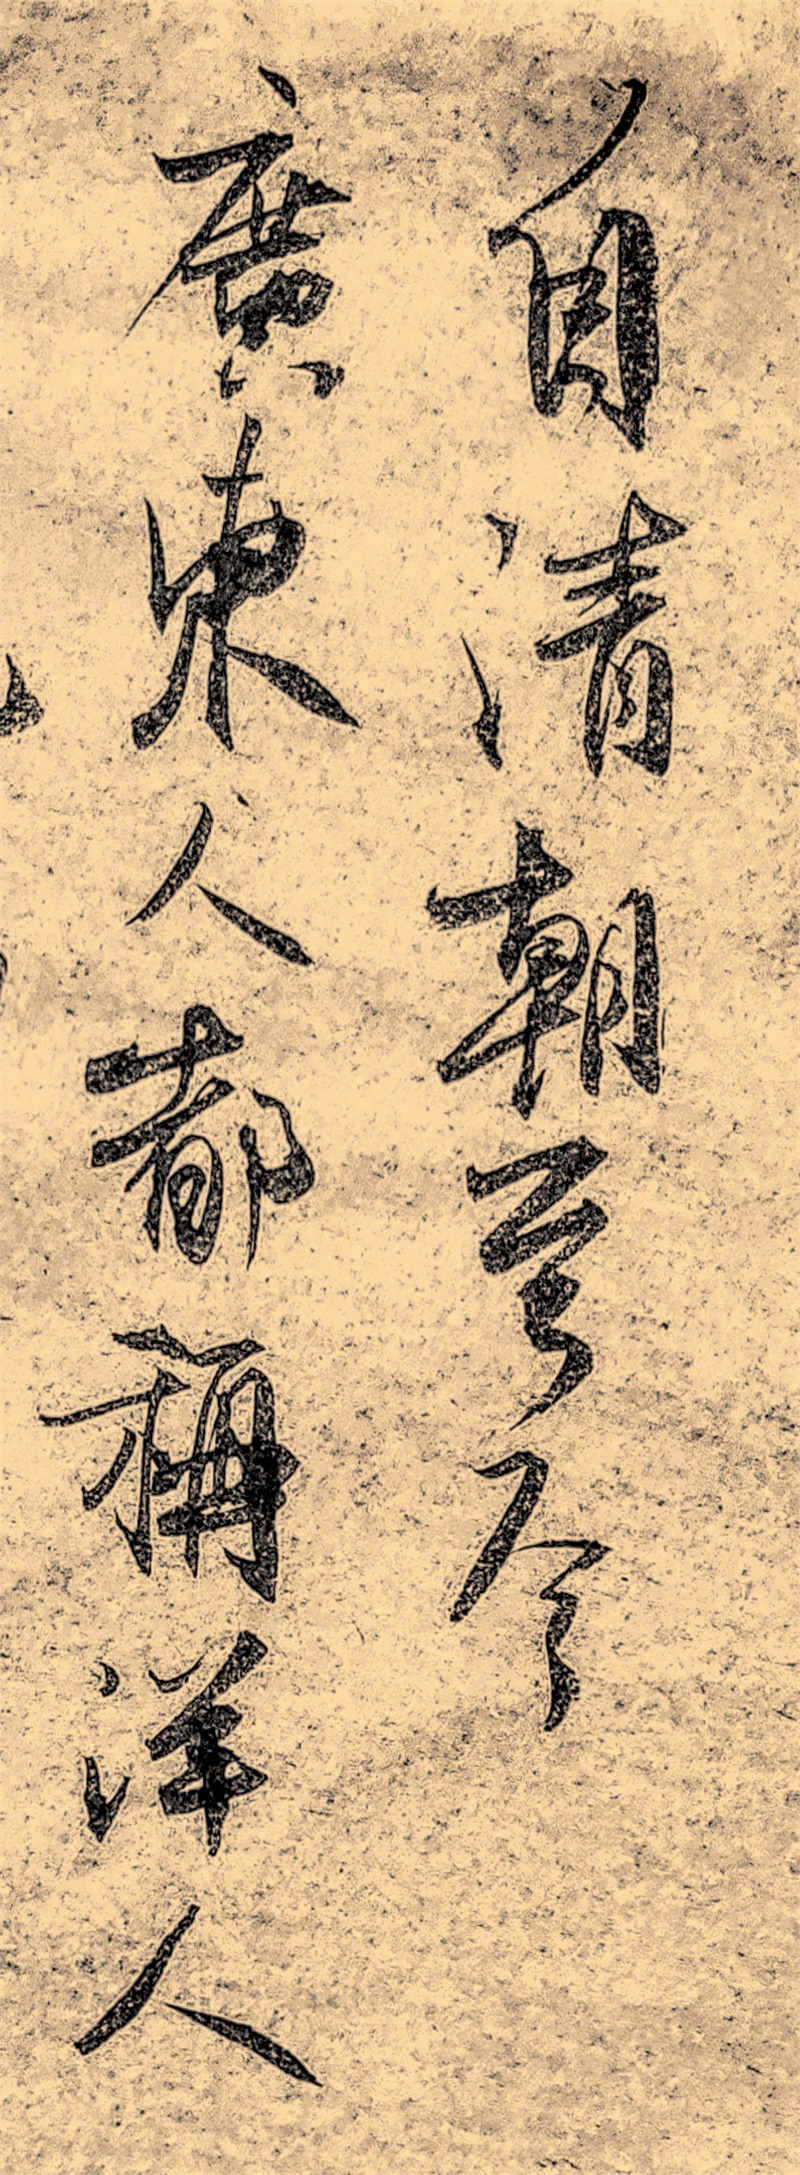 自清朝至今
廣東人都稱洋人